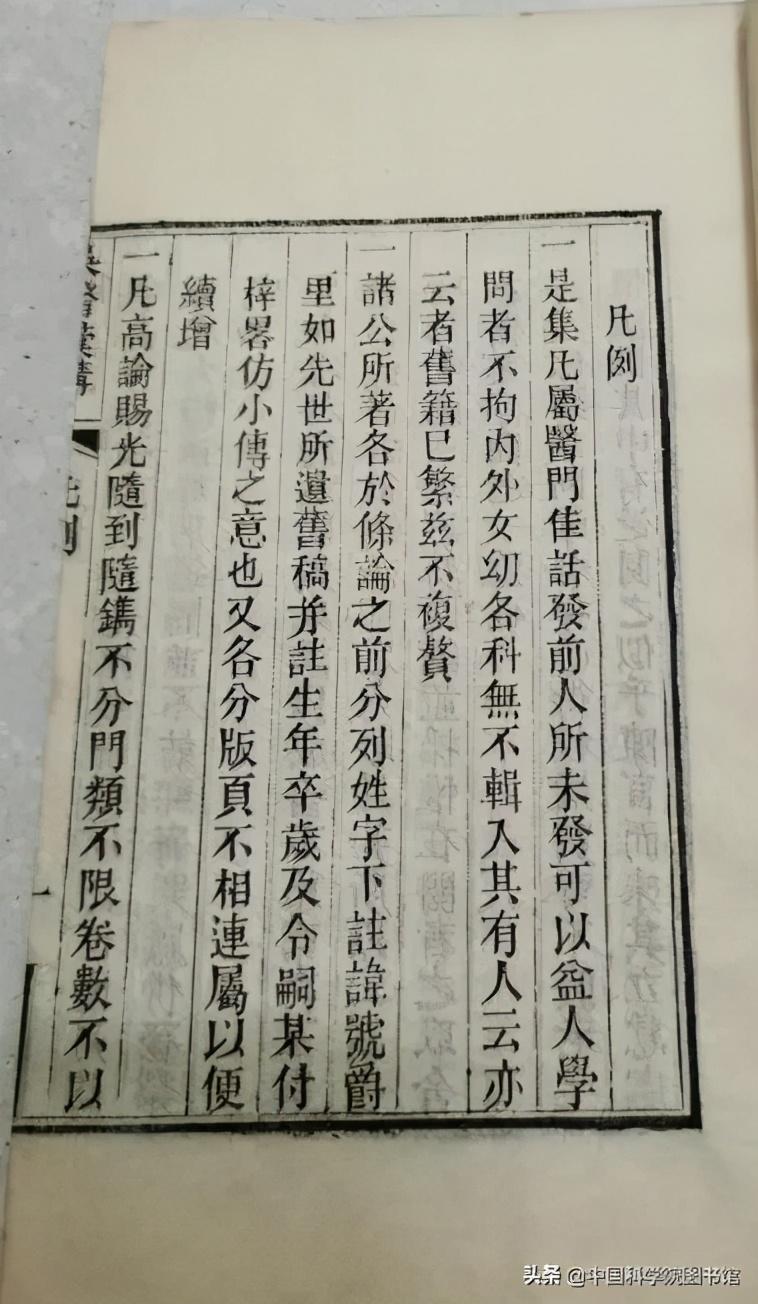 凡例
一是集凡屬醫門佳話發前人所未發可以益人學
問者不拘內外女幼各科無不輯入其有人云亦
云者舊籍已繁茲不複贅
一諸公所著各於條論之前分列姓字下註諱號爵
里如先世所遺舊稿并註生年卒歲及令嗣某付
梓畧仿小傳之意也又各分版頁不相連屬以便
續增
一凡高論賜光隨到隨鐫不分門類不限卷數不以
吳醫彙講
凡例
一
头条 @中国科学院图书馆